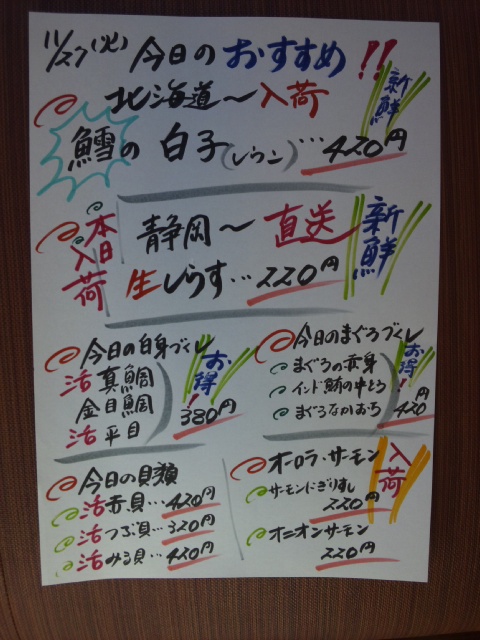 11/27(火) 今日のおすすめ!!
北海道〜入荷 新鮮
鱈の白子(レウン)…420円
本日入荷
静岡〜直送 新鮮
生しらす…220円
今日の白身づくし お得!
活真鯛
金目鯛
活平目
380円
今日のまぐろづくし お得!
まぐろの赤身
インド鮪の中とろ
まぐろなかおち
420円
今日の貝類
活赤貝…420円
活つぶ貝…320円
活みる貝…420円
オーロラ・サーモン 入荷
サーモンにぎりすし
220円
オニオンサーモン
220円